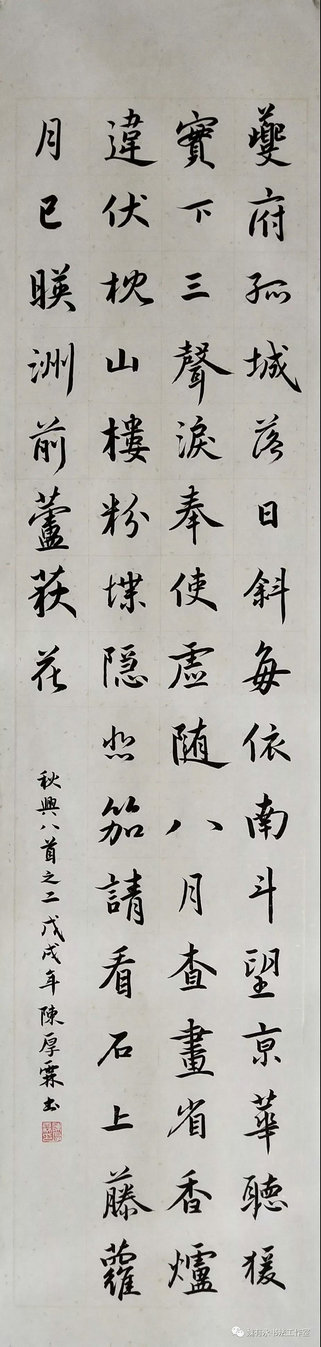 夔府孤城落日斜每依南斗望京華聽猨
實下三聲淚奉使虛随八月查畫省香爐
違伏枕山樓粉堞隐悲笳請看石上藤蘿
月已暎洲前蘆荻花
秋興八首之二戊戌年陳厚霖书
有永书法工作室